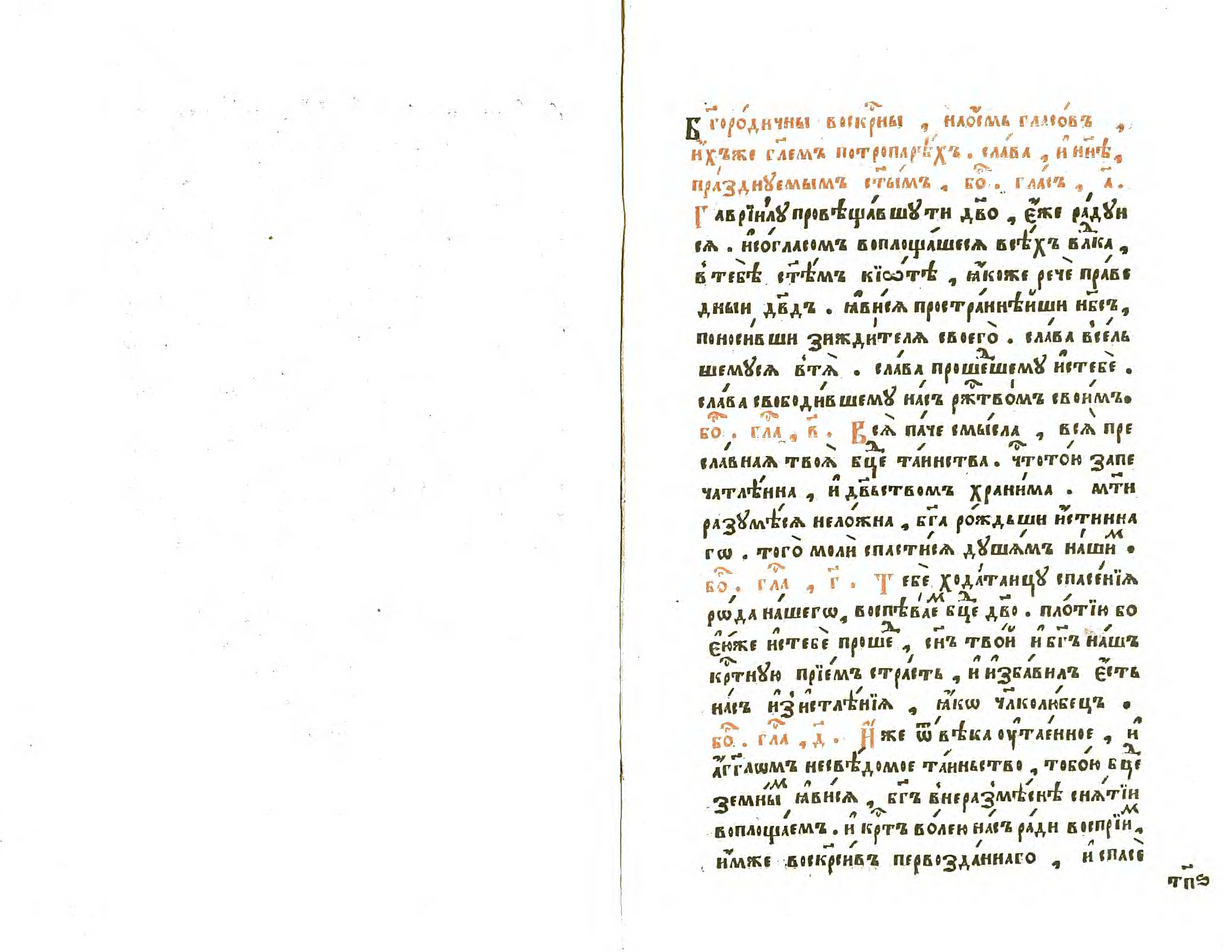 Бг҃оро́дичны воскрⷭ҇ны , наѻ҆́смь гласо́въ ,
и҆́хъже гл҃емъ потропарѣ́хъ . сла́ва , и҆ нн҃ѣ ,
пра́зднꙋемымъ ст҃ы́мъ , бо҃ . гла́съ , а҃ .
Гаврїи́лꙋ провѣща́вшꙋ ти дв҃о , є҆́же ра́дꙋи
сѧ . и҆согла́сомъ воплоща́шесѧ всѣ́хъ вл҃ка ,
в тебѣ̀ ст҃ѣ́мъ кїѡ́тѣ , ꙗ҆́коже речѐ пра́ве
дныи дв҃дъ . ꙗ҆ви́сѧ простра́ннѣиши нб҃съ ,
поноси́вши зижди́телѧ своего̀ . сла́ва все́ль
шемꙋсѧ в тѧ̀ . сла́ва проше́дшемꙋ и҆стебѐ .
сла́ва свободи́вшемꙋ на́съ ржⷭ҇тво́мъ свои́мъ .
бо҃ . гла́ , в҃ . Всѧ̀ па́че смы́сла , всѧ̀ пре
сла́внаѧ твоѧ̀ бц҃е та́инства . чⷭ҇тото́ю запе
чатлѣ́нна , и҆ дв҃ьствомъ храни́ма . мт҃и
разꙋмѣ́сѧ нело́жна , бг҃а ро́ждьши и҆́стинна
гѡ . того̀ молѝ спасти́сѧ дꙋша́мъ на́шиⷨ .
бо҃ . гла́ , г҃ . Тебѐ хода́таицꙋ спасе́нїѧ
рѡ́да на́шегѡ , воспѣва́еⷨ бц҃е дв҃о . пло́тїю бо
є҆́юже и҆стебѐ проше́ⷣ , сн҃ъ тво́й и҆ бг҃ъ на́шъ
крⷭ҇тнꙋю прїе́мъ стра́сть , и҆ и҆зба́вилъ є҆́сть
на́съ и҆зꙿистлѣ́нїѧ , ꙗ҆́кѡ чл҃колю́бецъ .
бо҃ . гла́ , д҃ . И҆́же ѿ вѣ́ка ѹ҆тае́нное , и҆
а҆́гг҃лѡмъ несвѣ́домое та́иньство , тобо́ю бц҃е
земны́ⷨ ꙗ҆ви́сѧ , бг҃ъ внеразмѣ́снѣ снѧ́тїи
воплоща́емъ . и҆ кр҃тъ во́лею на́съ ра́ди воспрїи́ⷨ ,
и҆́мже воскрⷭ҇и́въ первозда́ннаго , и҆ спасѐ
тп҃ѕ